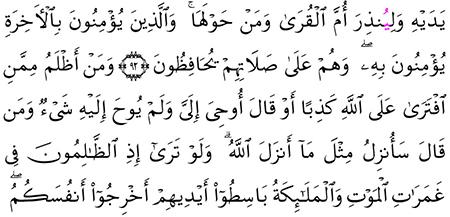 يَدَيْهِ وَلِيُنذِرَ أُمَّ ٱلْقُرَىٰ وَمَنْ حَوْلَهَا ۚ وَٱلَّذِينَ يُؤْمِنُونَ بِٱلْـَٔاخِرَةِ
يُؤْمِنُونَ بِهِۦ ۖ وَهُمْ عَلَىٰ صَلَاتِهِمْ يُحَافِظُونَ ﴿٩٢﴾ وَمَنْ أَظْلَمُ مِمَّنِ
ٱفْتَرَىٰ عَلَى ٱللَّهِ كَذِبًا أَوْ قَالَ أُوحِىَ إِلَىَّ وَلَمْ يُوحَ إِلَيْهِ شَىْءٌ وَمَن
قَالَ سَأُنزِلُ مِثْلَ مَآ أَنزَلَ ٱللَّهُ ۗ وَلَوْ تَرَىٰٓ إِذِ ٱلظَّـٰلِمُونَ فِى
غَمَرَٰتِ ٱلْمَوْتِ وَٱلْمَلَـٰٓئِكَةُ بَاسِطُوٓا۟ أَيْدِيهِمْ أَخْرِجُوٓا۟ أَنفُسَكُمُ ۖ